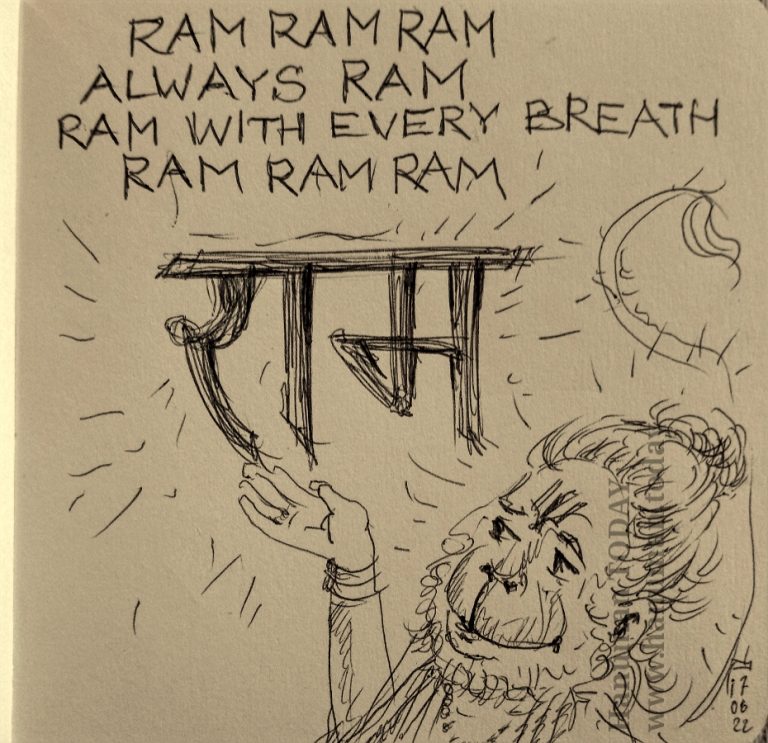 RAM RAM RAM
ALWAYS RAM
RAM WITH EVERY BREATH
RAM RAM RAM
राम
Hanuman TODAY
17
08
22